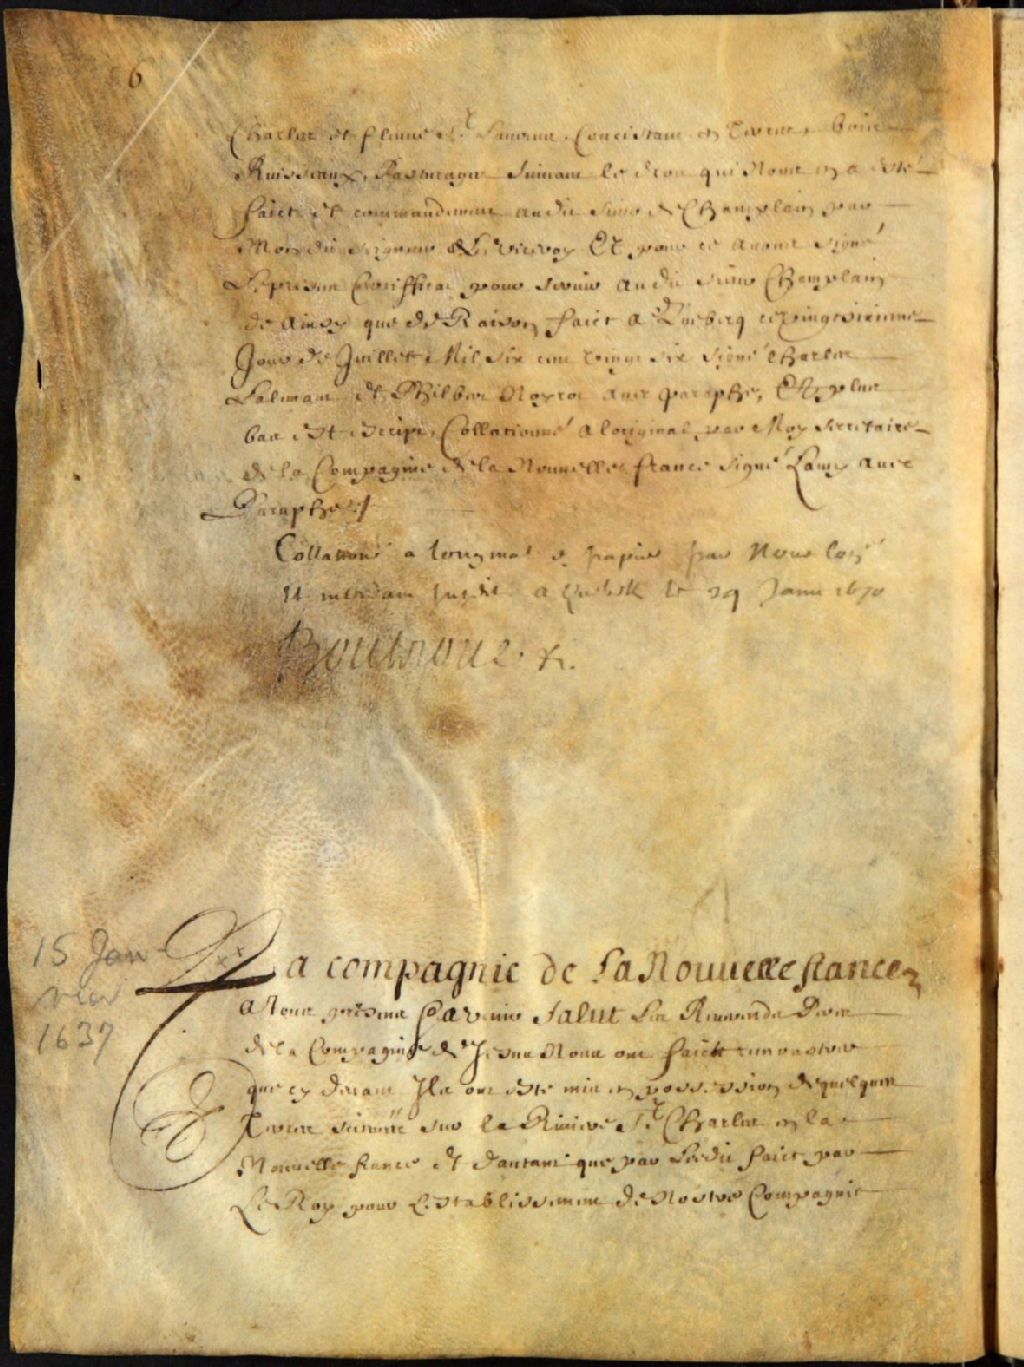 6
Charles et fleuue St Laurens Consistans en Terres, bois
Ruisseaux, Pasturages suiuant le don qui Nous en a esté
faict et commandement audit sieur de Champlain par
Mondit seigneur le Viceroy Et pour ce auons signé
Le present Certifficat pour seruir audit sieur Champlain
de ainsy que de Raison faict a Quebecq ce vingtsixiesme
Jour de Juillet Mil six cent vingt six signé Charles
Lalemant et Philbert Noyrot auec paraphe, Et plus
bas est escript Collationné a loriginal par Moy secretaire
de la Compagnie de la Nouuelle france signé Lamy auec
Paraphe
Collationné a loriginal en papier par Nous Coner
Et intendant susdit a Quebek le 29 Janu 1670
Boutroue
15 Jan-
vier
1637
La compagnie de La Nouuelle france
A tous presens & aVenir Salut Les Reuerends Peres
de la Compagnie de Jesus Nous ont faict remonstrer
que cy deuant Ils ont esté mis en possession de quelques
Terres scituées sur la Riuiere St Charles en la
Nouuelle france et d'autant que par Ledit faict par
Le Roy pour Lestablissement de Nostre Compagnie